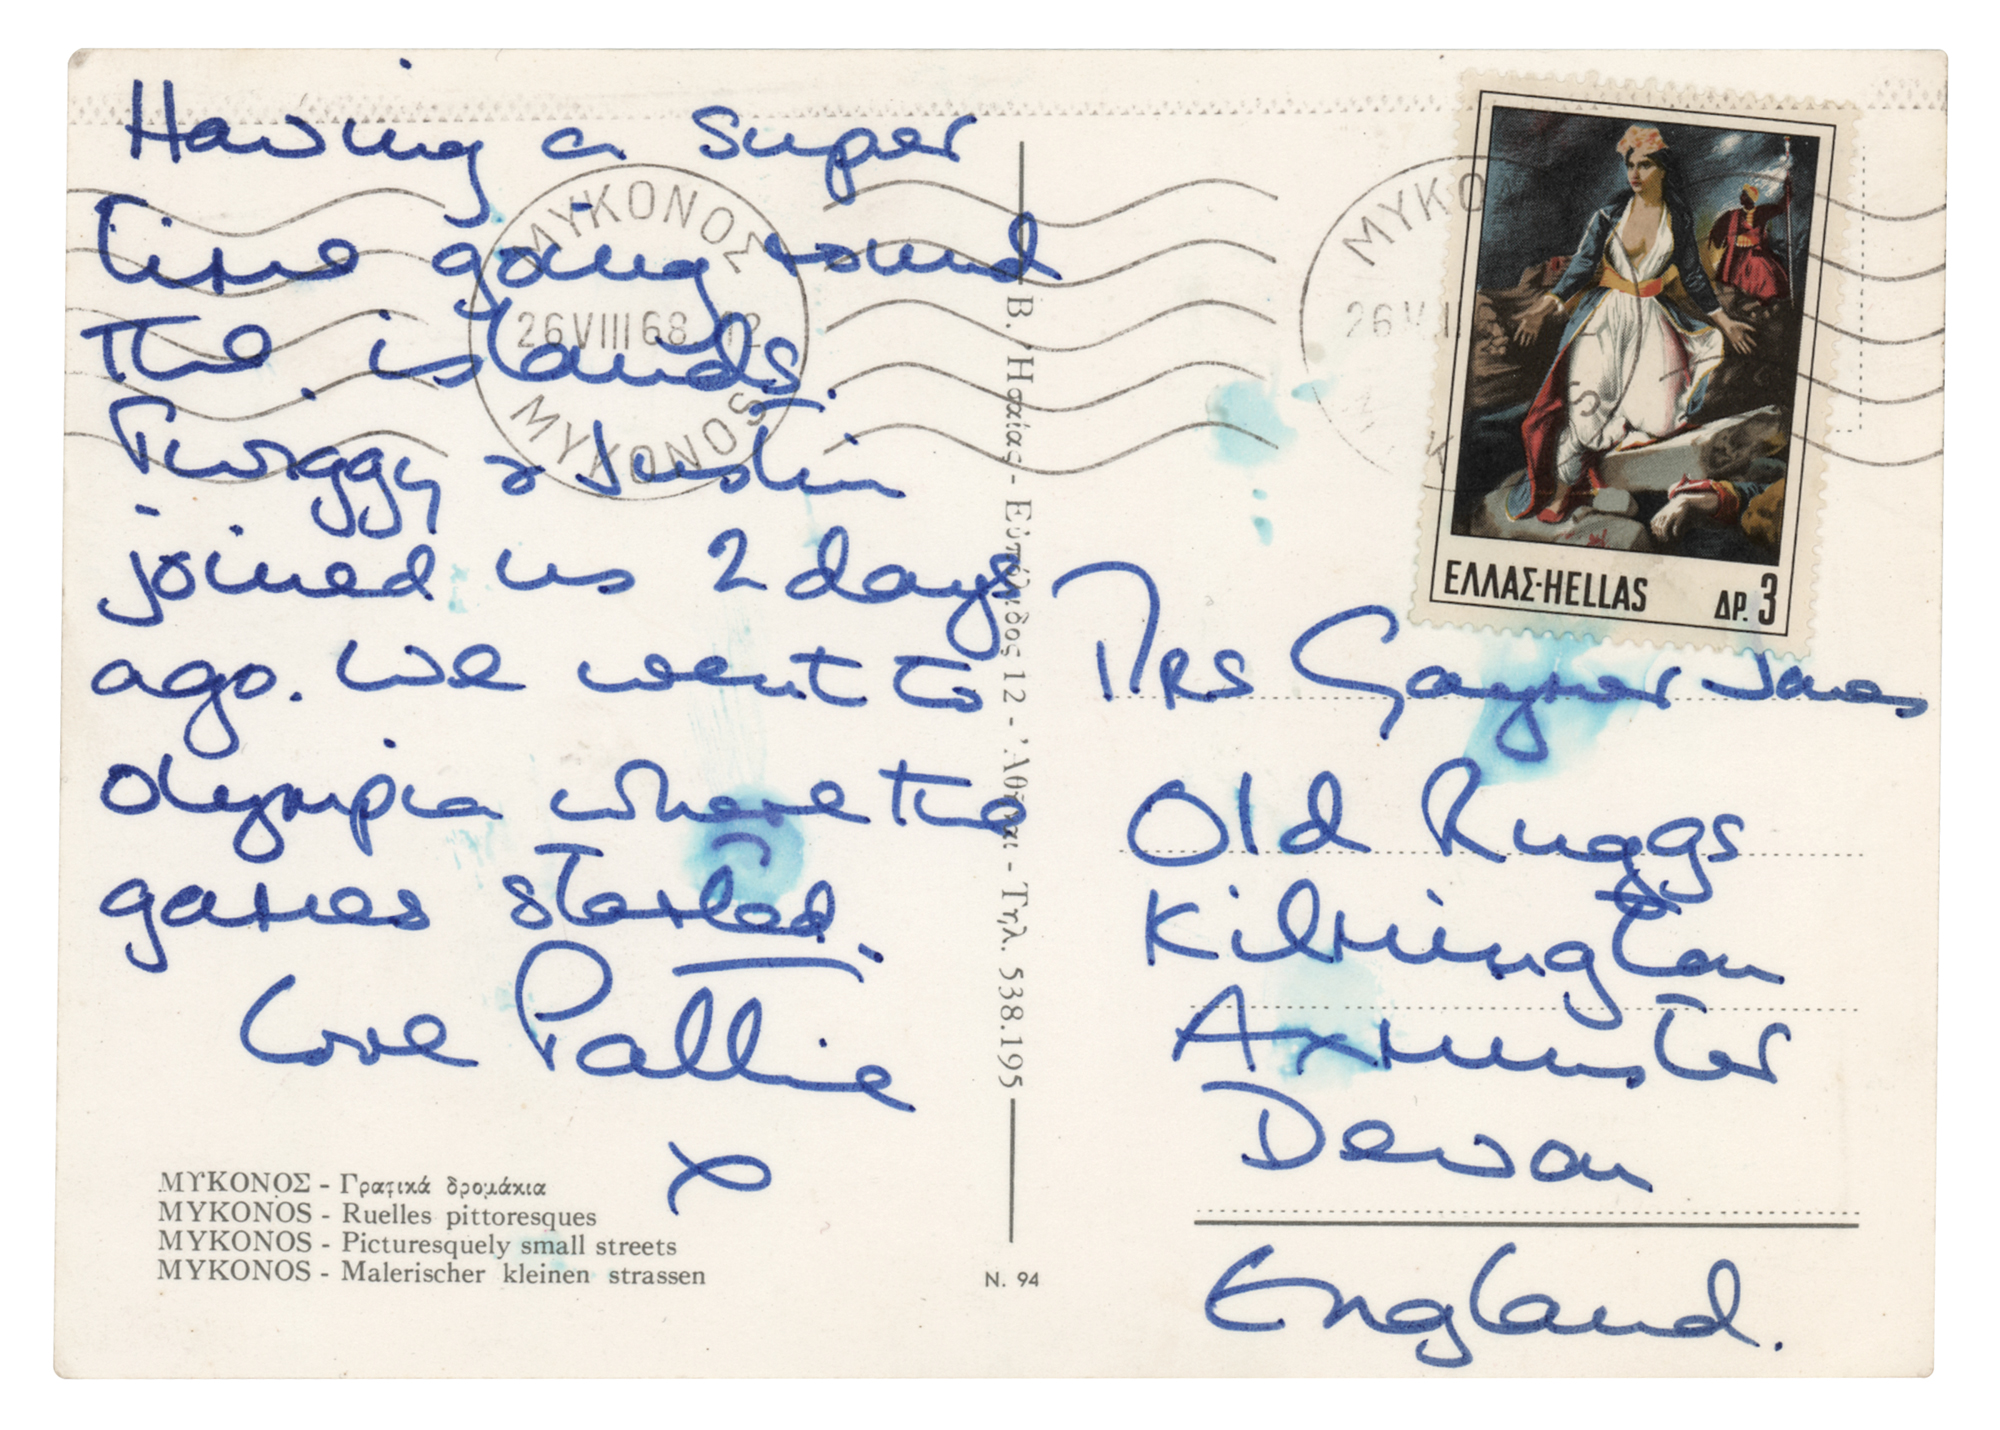 Having a super
time going round
the islands.
Twiggy & Justin
joined us 2 days
ago. We went to
olympia where the
games started.
Love Pattie
x
ΜΥΚΟΝΟΣ - Γραφικά δρομάκια
MYKONOS - Ruelles pittoresques
MYKONOS - Picturesquely small streets
MYKONOS - Malerischer kleinen strassen
ΜΥΚΟΝΟΣ
26 VIII 68 12
MYKONOS
Β. Ησαίας - Εὐπόλιδος 12 - Ἀθῆναι - Τηλ. 538.195
N. 94
ΕΛΛΑΣ·HELLAS ΔΡ. 3
Mrs Gaymer Jones
Old Ruggs
Kilmington
Axminster
Devon
England.